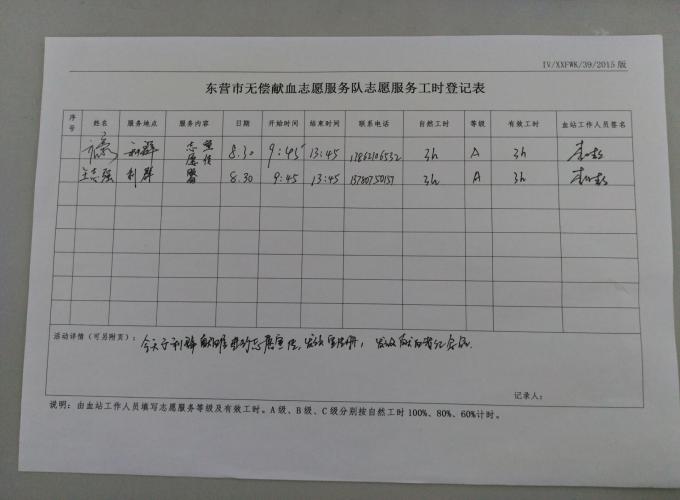 IV/XXFWK/39/2015 版
东营市无偿献血志愿服务队志愿服务工时登记表
序号 姓名 服务地点 服务内容 日期 开始时间 结束时间 联系电话 自然工时 等级 有效工时 血站工作人员签名
利群 志愿宣传 8.30 9:45 13:45 17862106532 3h A 3h
王志强 利群 8.30 9:45 13:45 13780750157 3h A 3h
活动详情(可另附页): 今天于利群献血
记录人:
说明:由血站工作人员填写志愿服务等级及有效工时。A级、B级、C级分别按自然工时100%、80%、60%计时。